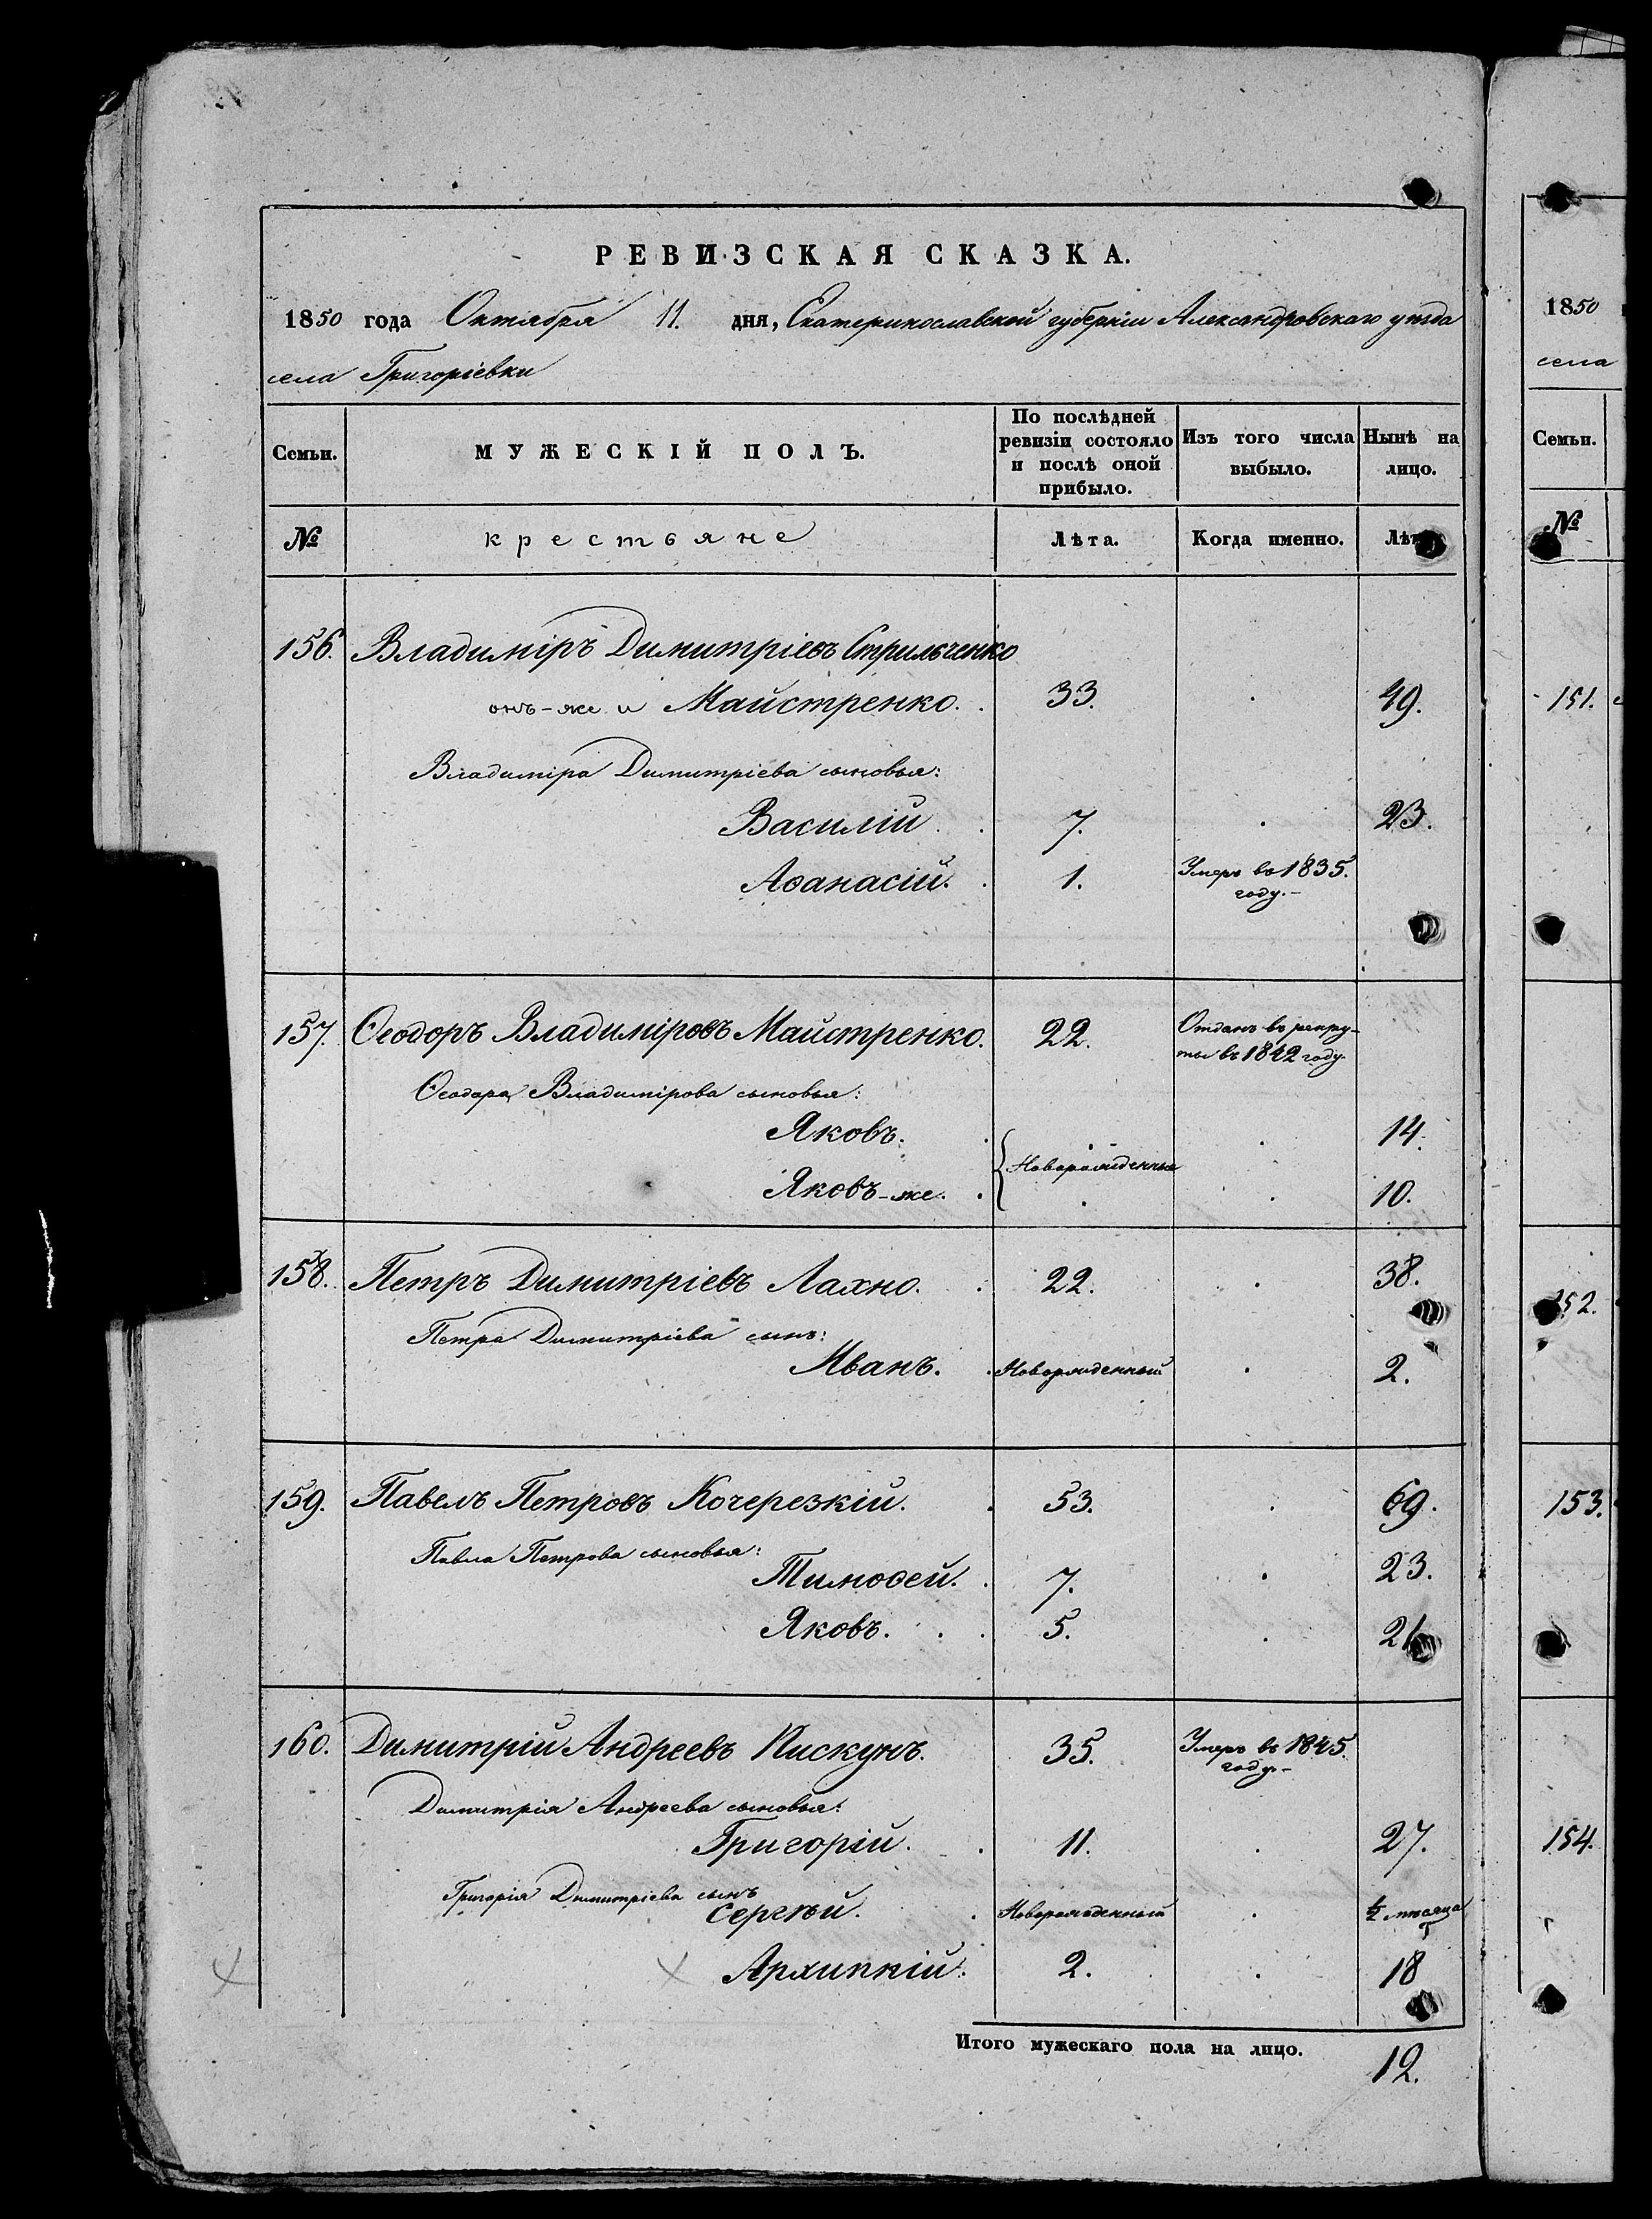 РЕВИЗСКАЯ СКАЗКА.
1850 года Октября 11. дня, Екатеринославской губерніи Александровскаго уѣзда
села Григоріевки
Семьи. МУЖЕСКІЙ ПОЛЪ. По послѣдней ревизіи состояло и послѣ оной прибыло. Изъ того числа выбыло. Нынѣ на лицо.
№ крестьяне Лѣта. Когда именно. Лѣта.
156. Владиміръ Димитріевъ Стрильченко
онъ-же и Майстренко. 33. 49.
Владиміра Димитріева сыновья:
Василій. 7. 23.
Аѳанасій. 1. Умеръ въ 1835. году.-
157. Ѳеодоръ Владиміровъ Майстренко. 22. Отданъ въ рекру-
ты въ 1842 году.
Ѳеодора Владимірова сыновья:
Яковъ. 14.
Новорожденные
Яковъ-же. 10.
158. Петръ Димитріевъ Лахно. 22. 38.
Петра Димитріева сынъ:
Иванъ. Новорожденный 2.
159. Павелъ Петровъ Кочерезкій. 53. 69.
Павла Петрова сыновья:
Тимоѳей. 7. 23.
Яковъ. 5. 21
160. Димитрій Андреевъ Пискунъ. 35. Умеръ въ 1845.
году.-
Димитрія Андреева сыновья:
Григорій. 11. 27.
Григорія Димитріева сынъ
Сергѣй. Новорожденный ½ мѣсяца
Архипкій. 2. 18
Итого мужескаго пола на лицо. 12.
1850
села
Семьи.
№
151.
152.
153.
154.